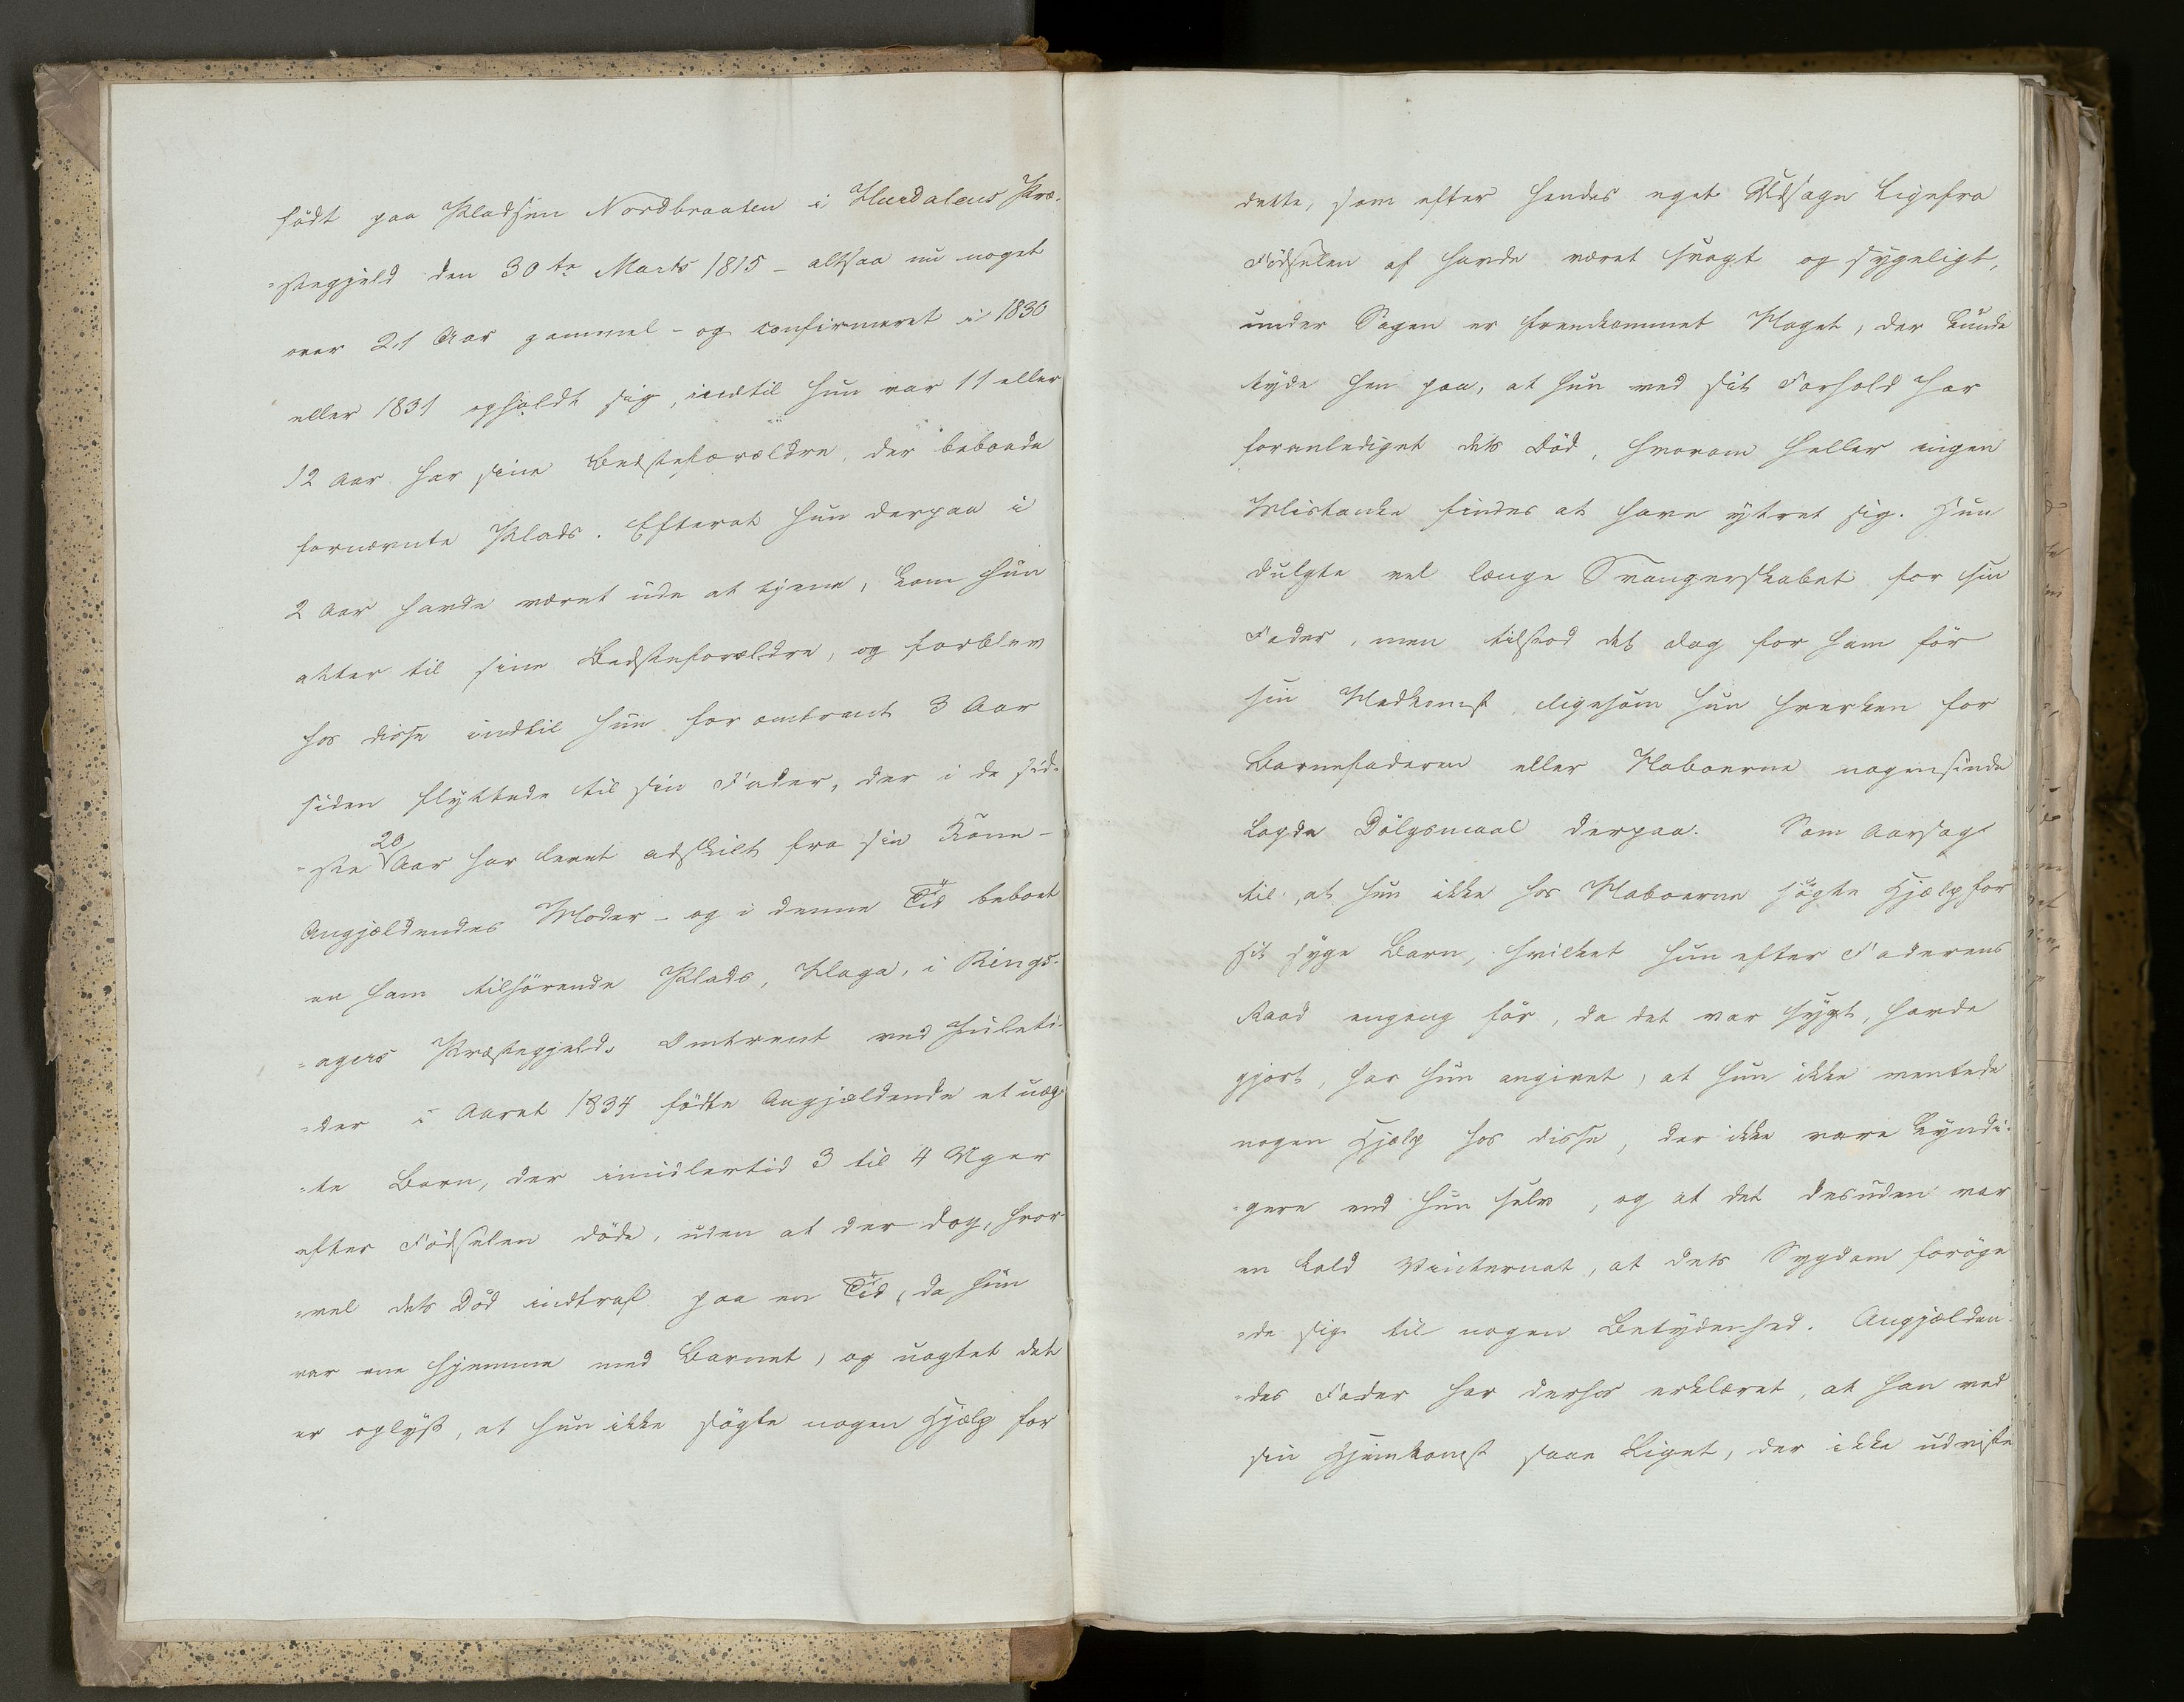 född paa Pladsen Nordbraaten i Hurdalens Præ-
=stegjeld den 30te Marts 1815 – altsaa nu noget
over 21 Aar gammel – og confirmeret i 1830
eller 1831 opholdt sig, indtil hun var 11 eller
12 Aar hos sine Bedsteforældre, der beboede
fornævnte Plads. Efterat hun derpaa i
2 Aar havde været ude at tjene, kom hun
atter til sine Bedsteforældre, og forblev
hos disse indtil hun for omtrent 3 Aar
siden flyttede til sin Fader, der i de sid-
=ste 20 Aar har levet adskilt fra sin Kone –
Angjældendes Moder – og i denne Tid beboet
en ham tilhörende Plads, Haga, i Rings-
=agers Præstegjeld. Omtrent ved Juleti-
=der i Aaret 1834 fødte Angjældende et uæg-
=te Barn, der imidlertid 3 til 4 Uger
efter Födselen döde, uden at der dog, hvor-
=vel dets Död indtraf paa en Tid, da hun
var ene hjemme med Barnet, og uagtet det
er oplyst, at hun ikke sögte nogen Hjælp for
dette, som efter hendes eget Udsagn ligefra
Födselen af havde været svagt og sygeligt,
under Sagen er fremkommet Noget, der kunde
tyde hen paa, at hun ved sit Forhold har
foranlediget dets Död, hvorom heller ingen
Mistanke findes at have ytret sig. Hun
dulgte vel længe Svangerskabet for sin
Fader, men tilstod det dog for ham för
sin Nedkomst, ligesom hun hverken for
Barnefaderen eller Naboerne nogensinde
lagde Dölgsmaal derpaa. Som Aarsag
til, at hun ikke hos Naboerne sögte Hjælp for
sit syge Barn, hvilket hun efter Faderens
Raad engang för, da det var sygt, havde
gjort, har hun angivet, at hun ikke ventede
nogen Hjælp hos disse, der ikke vare kyndi-
=gere end hun selv, og at det desuden var
en kold Vinternat, at dets Sygdom foröge-
=de sig til nogen Betydenhed. Angjælden-
=des Fader har derhos erklæret, at han ved
sin Hjemkomst saae Liget, der ikke udviste